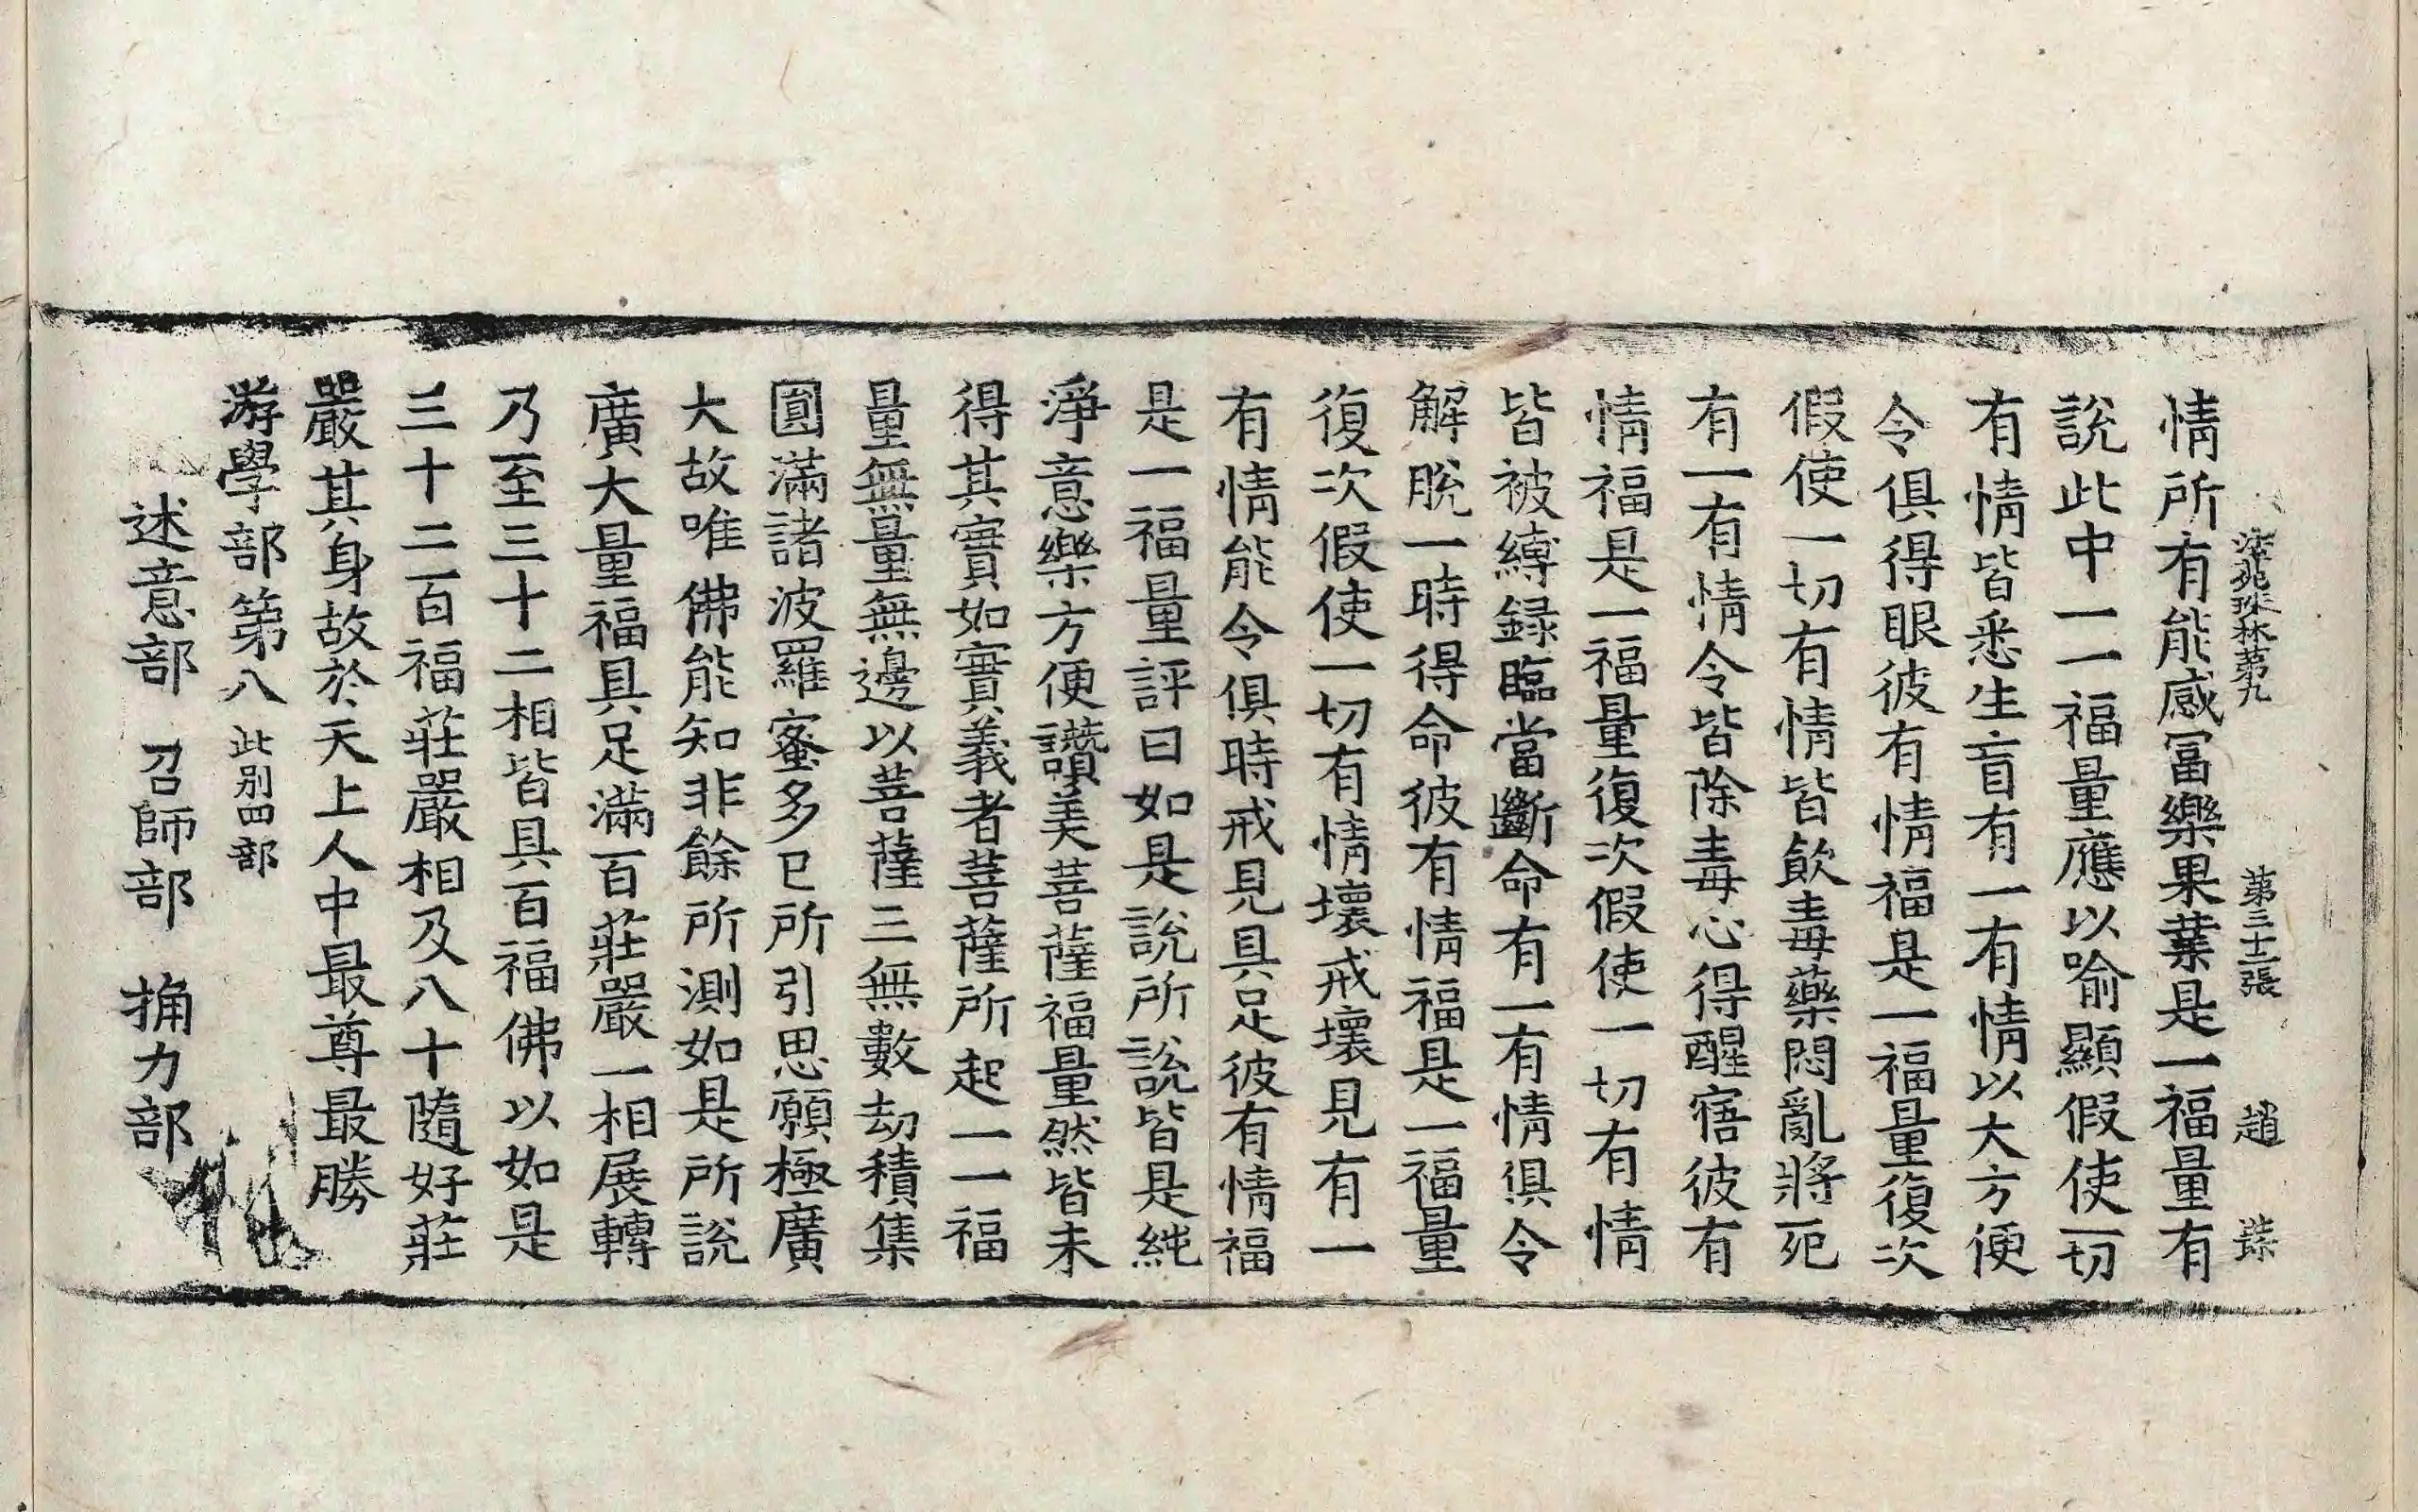 法苑珠林苐九 苐三十二張 趙
情所有能感冨樂果業是一福量有
說此中一一福量應以喻顯假使一切
有情皆悉生盲有一有情以大方便
令俱得眼彼有情福是一福量復次
假使一切有情皆飲毒藥悶亂將死
有一有情令皆除毒心得醒寤彼有
情福是一福量復次假使一切有情
皆被縛録臨當斷命有一有情俱令
解脫一時得命彼有情福是一福量
復次假使一切有情壞戒壞見有一
有情能令俱時戒見具足彼有情福
是一福量評曰如是說所說皆是純
淨意樂方便讚美菩薩福量然皆未
得其實如實義者菩薩所起一一福
量無量無邊以菩薩三無數劫積集
圓滿諸波羅蜜多巳所引思願極廣
大故唯佛能知非餘所測如是所說
廣大量福具足滿百莊嚴一相展轉
乃至三十二相皆具百福佛以如是
三十二百福莊嚴相及八十隨好莊
嚴其身故於天上人中最尊最勝
游學部第八 此别四部
述意部 召師部 捔力部